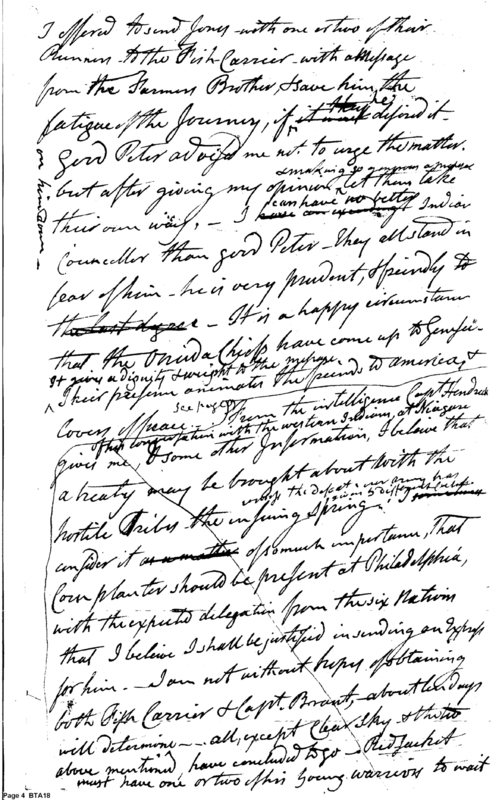 I offered to send Jones with one or two of their
Runners to the Fish Carrier with a Message
from the Farmers Brother, & save him, the
fatigue of the Journey, if they desired it
good Peter advised me not to urge the matter.
making so generous a
but after giving my opinion let them take
on him down
can have no better
their own way, — I Indian
Councellor than good Peter — they all stand in
fear of him — he is very prudent, & friendly to
the last degree — It is a happy circumstance
that the Onida Chiefs have come up to Genesee
It gives a dignity & weight to the
Their presence animates the friends to America, &
see page
Lovers of peace — From the intelligence Capt Hendrick
of his conversation with the western Indians, at Niagara
gives me, & some other Information, I believe that
a treaty may be brought about with the
unless the defeat our army has
hostile Tribes the insuing Spring. I
consider it as a matter of so much importance, That
Corn planter should be present at Philadelphia,
with the expected delegation from the six Nations
that I beleive I shall be justified in sending an Express
for him. — I am not without hopes of obtaining
both Fish Carrier & Capt. Brant, — about ten days
will determine — all, except Clear Sky & the two
above mentioned, have concluded to go — Red Jacket
must have one or two of his young warriors to wait
Page 4 BTA18